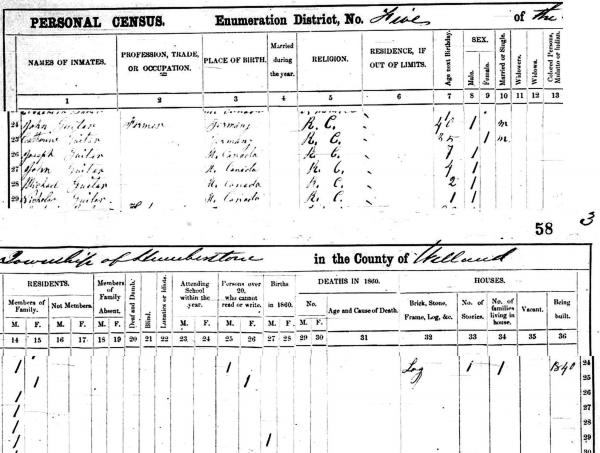 PERSONAL CENSUS. Enumeration District, No. Five of the
NAMES OF INMATES. PROFESSION, TRADE, OR OCCUPATION. PLACE OF BIRTH. Married during the year. RELIGION. RESIDENCE, IF OUT OF LIMITS. Age next Birthday. SEX. Male. Female. Married or Single. Widowers. Widows. Colored Persons, Mulatto or Indian.
1 2 3 4 5 6 7 8 9 10 11 12 13
24 John Farmer Germany R. C. 40 1 m
25 R. C. 35 1 m
26 Joseph U. Canada R. C. 7 1
27 John U. Canada R. C. 4 1
28 Michael U. Canada R. C. 2 1
29 Nicholas U. Canada R. C. 1 1
58 3
Township of Humberstone in the County of Welland
RESIDENTS. Members of Family Absent. Deaf and Dumb. Blind. Lunatics or Idiots. Attending School within the year. Persons over 20, who cannot read or write. Births in 1860. DEATHS IN 1860. HOUSES.
Members of Family. Not Members. No. Age and Cause of Death. Brick, Stone, Frame, Log, &c. No. of Stories. No. of families living in house. Vacant. Being built.
M. F. M. F. M. F. M. F. M. F. M. F. M. F.
14 15 16 17 18 19 20 21 22 23 24 25 26 27 28 29 30 31 32 33 34 35 36
1 1 Log 1 1 1840 24
1 1 25
1 26
1 27
1 28
1 1 29
30